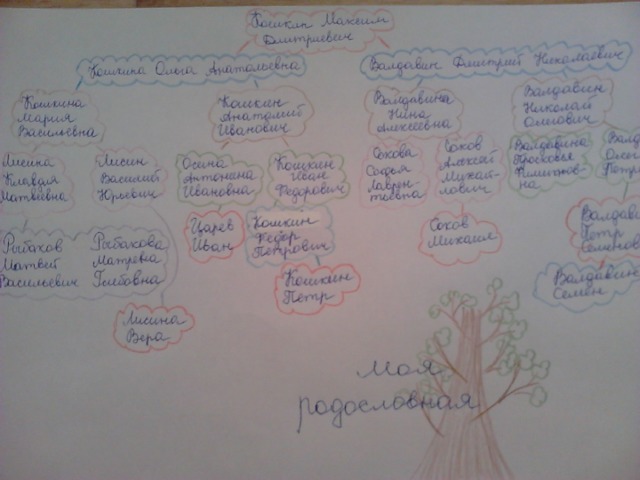 Кошкин Максим
Дмитриевич
Кошкина Ольга Анатольевна
Валдавин Дмитрий Николаевич
Кошкина
Мария
Васильевна
Кошкин
Анатолий
Иванович
Валдавина
Нина
Алексеевна
Валдавин
Николай
Олегович
Лисина
Клавдия
Матвеевна
Лисин
Василий
Юрьевич
Осина
Антонина
Ивановна
Кошкин
Иван
Федорович
Сохова
Софья
Лаврен-
тьевна
Сохов
Алексей
Михай-
лович
Валдавина
Просковья
Филипов-
на
Валд
Олег
Петр
Рыбаков
Матвей
Васильевич
Рыбакова
Матрена
Глебовна
Царев
Иван
Кошкин
Федор
Петрович
Сохов
Михаил
Валдавин
Петр
Семенов
Лисина
Вера
Кошкин
Петр
Валдавин
Семен
Моя
родословная